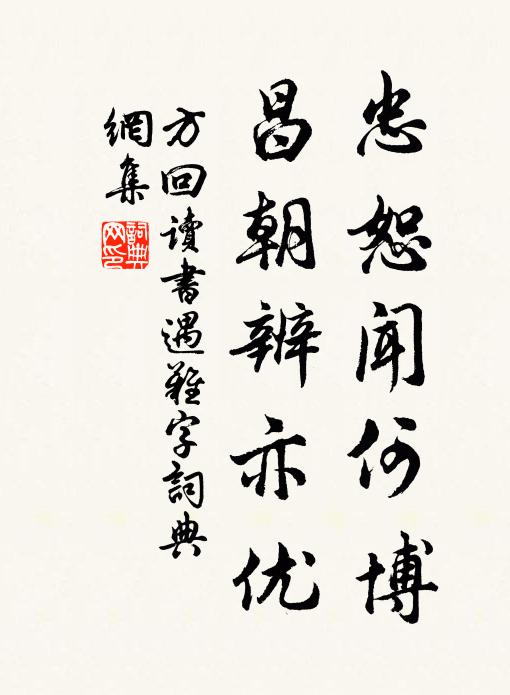 忠恕闻何博
昌朝辨亦优
方回讀書遇難字詞典
網集
詞典网印